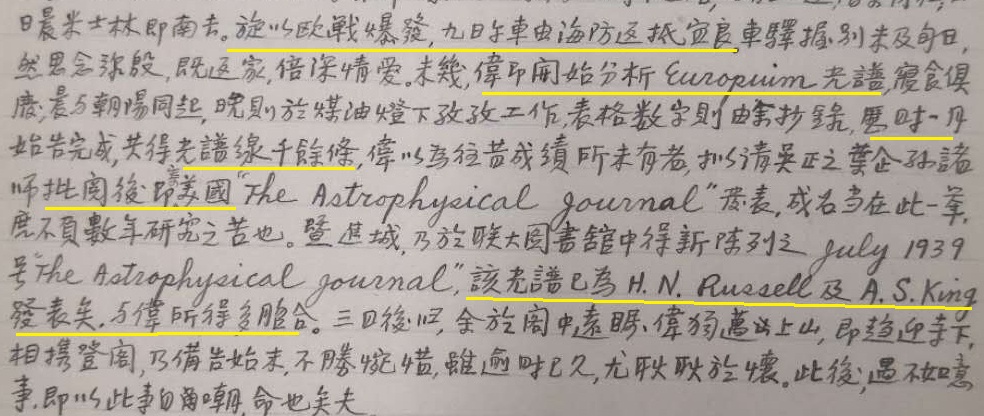 日晨米士林即南去。旋以欧戰爆發,九日午車由海防返抵宜良車驛握别未及旬日,
然思念弥殷,既返家,倍深情愛。未幾,偉即開始分析 Europuim 光譜,寝食俱
廢,晨与朝陽同起,晚則於煤油燈下孜孜工作,表格数字則由余抄錄,歷时一月
始告完成,共得光譜線千餘條,偉以為往昔成績所未有者,擬请吳正之葉企孙諸
师批閱後即寄美國“The Astrophysical Journal”發表,成名当在此一舉,
庶不負數年研究之苦也。暨進城,乃於联大图書舘中得新陳列之 July 1939
号“The Astrophysical Journal”,該光譜已為 H. N. Russell 及 A. S. King
發表矣,与偉所得多脗合。三日後晤,余於閣中遠眺,偉獨蓋出上山,即趋迎寺下,
相携登閣,乃備告始末,不勝惋惜,雖逾时已久,尤耿耿於懷。此後,遇不如意
事,即以此事自角嘲,命也矣夫